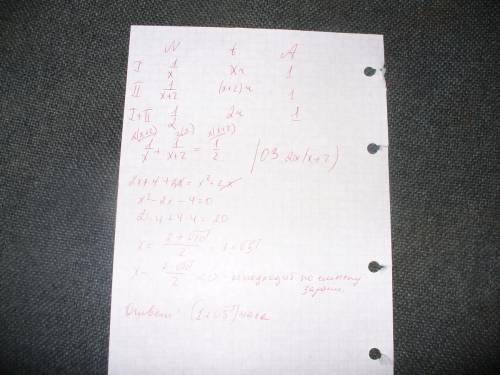 N t A
I 1/x xч 1
II 1/(x+2) (x+2)ч 1
I+II 1/2 2ч 1
1/x + 1/(x+2) = 1/2 | ОЗ 2x(x+2)
2x+4+2x = x²+2x
x²-2x-4=0
4+4·4=20
x = (2+√20)/2 = 1+√5
x = (2-√20)/2 <0 - не подходит по смыслу
задачи
Ответ: (1+√5) часа